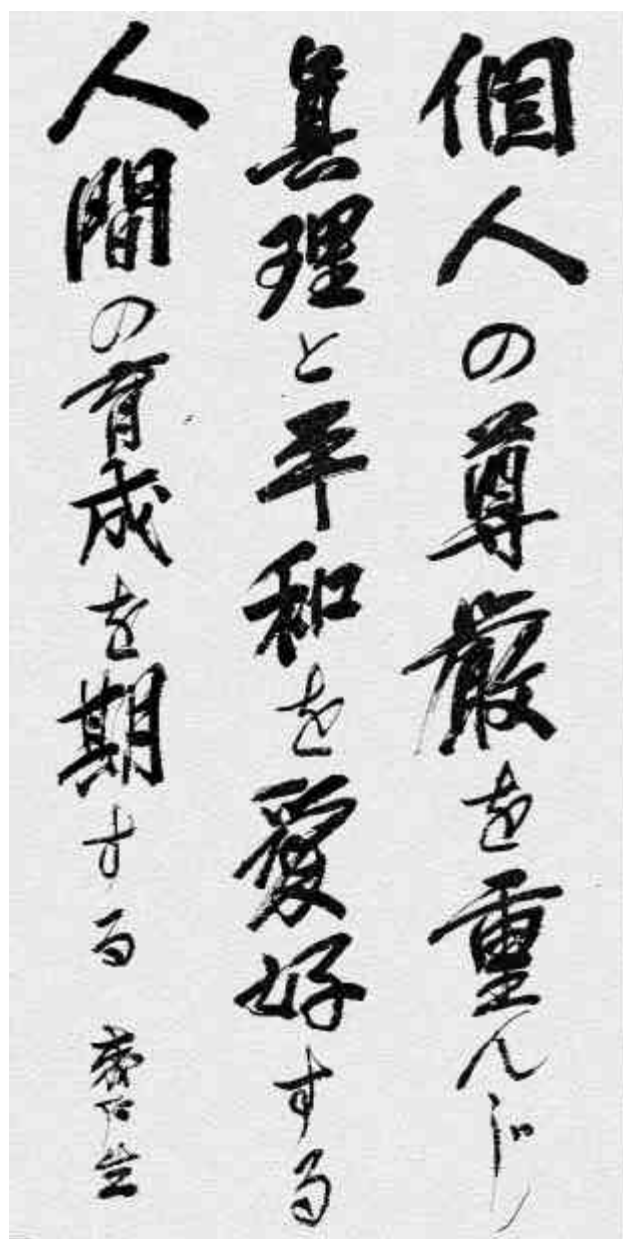 個人の尊厳を重んじ
眞理と平和を愛好する
人間の育成を期する